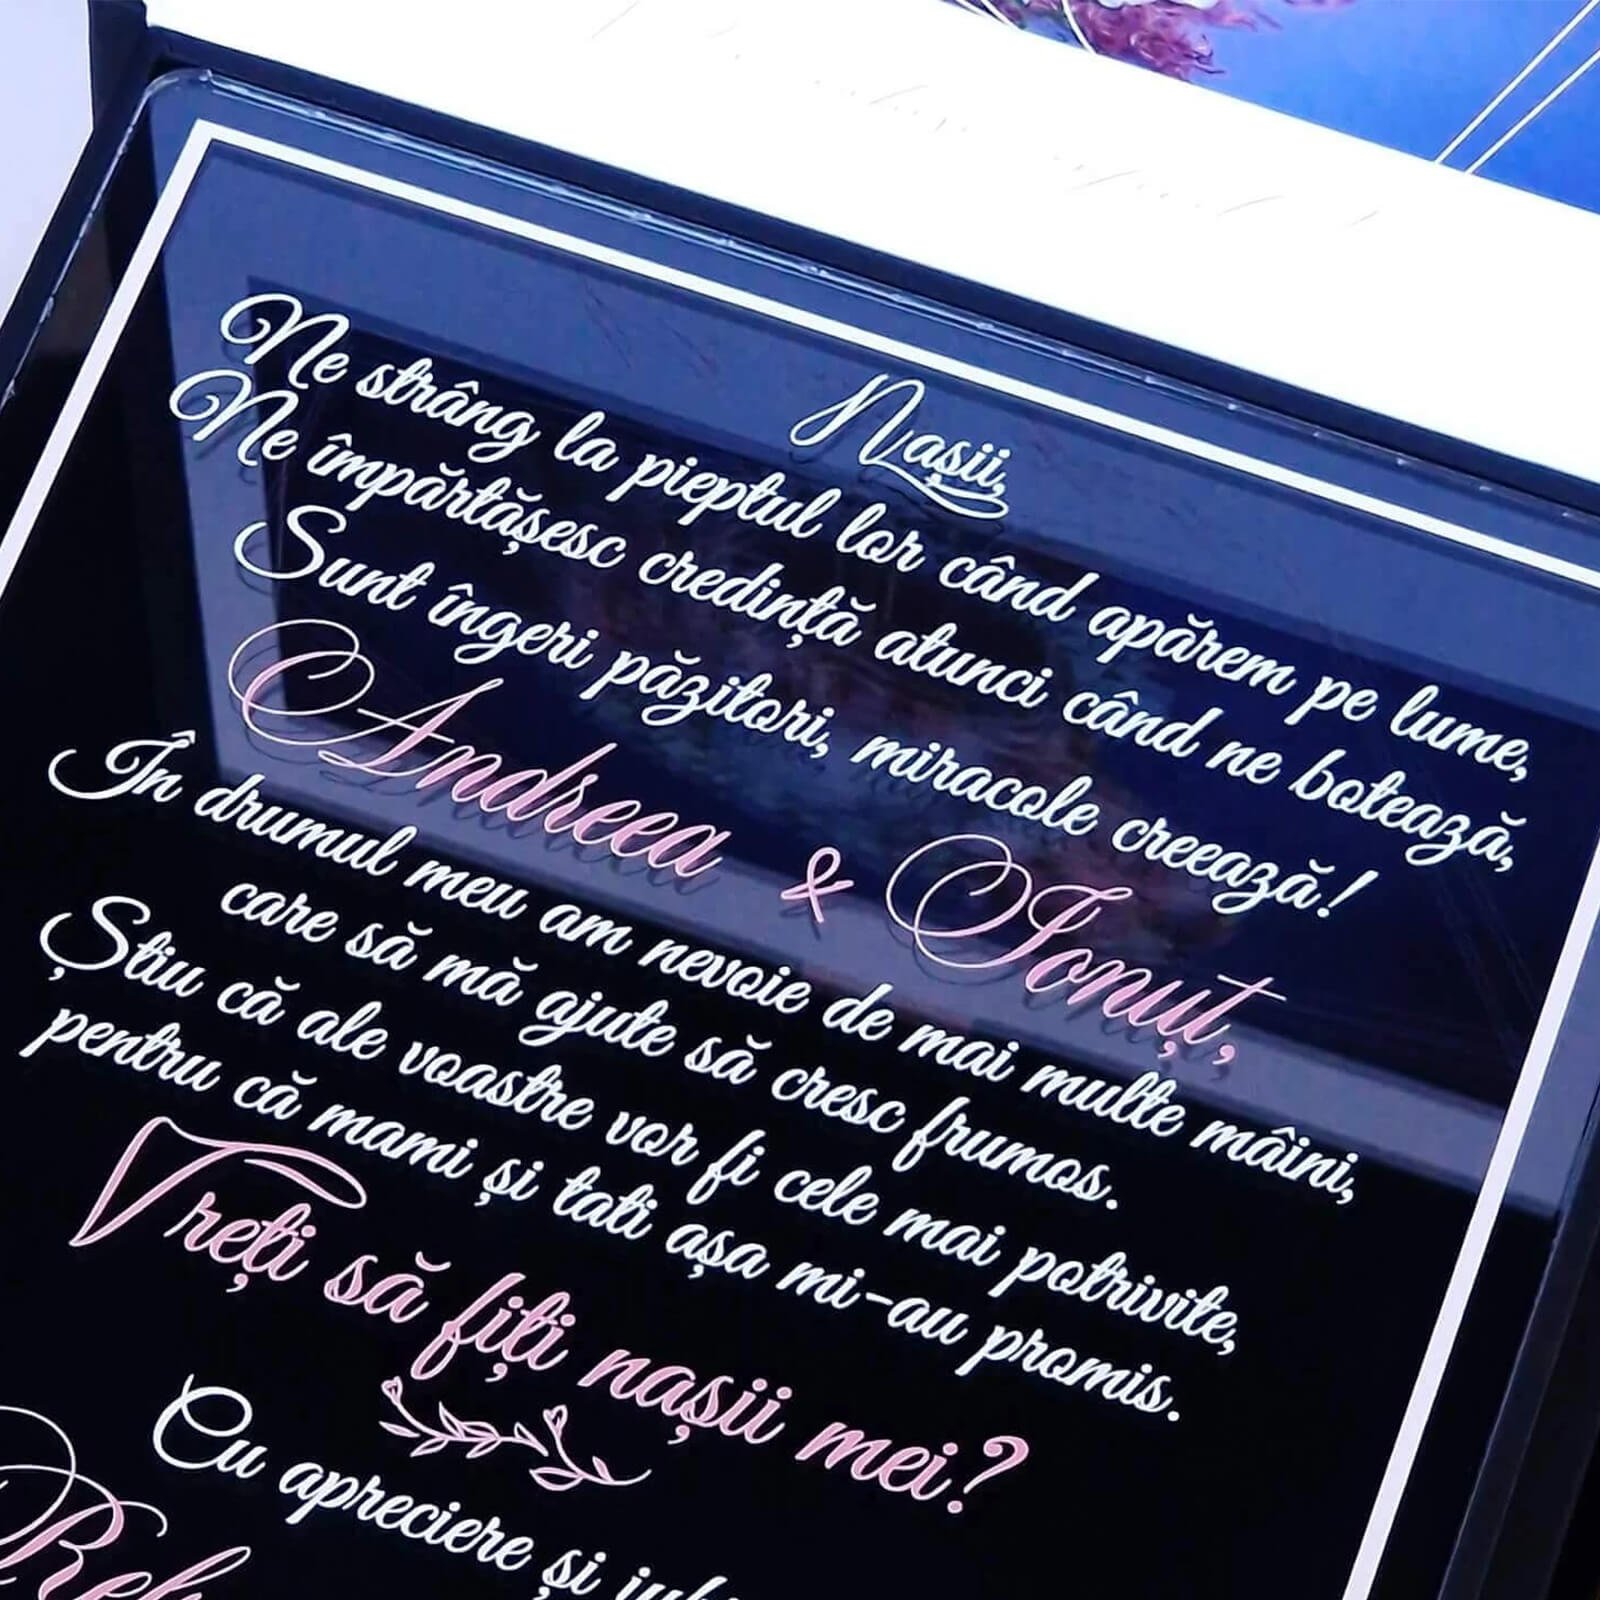 Nașii,
Ne strâng la pieptul lor când apărem pe lume,
Ne împărtășesc credință atunci când ne botează,
Sunt îngeri păzitori, miracole creează!
Andreea & Ionuț,
În drumul meu am nevoie de mai multe mâini,
care să mă ajute să cresc frumos.
Știu că ale voastre vor fi cele mai potrivite,
pentru că mami și tati așa mi-au promis.
Vreți să fiți nașii mei?
Cu apreciere și